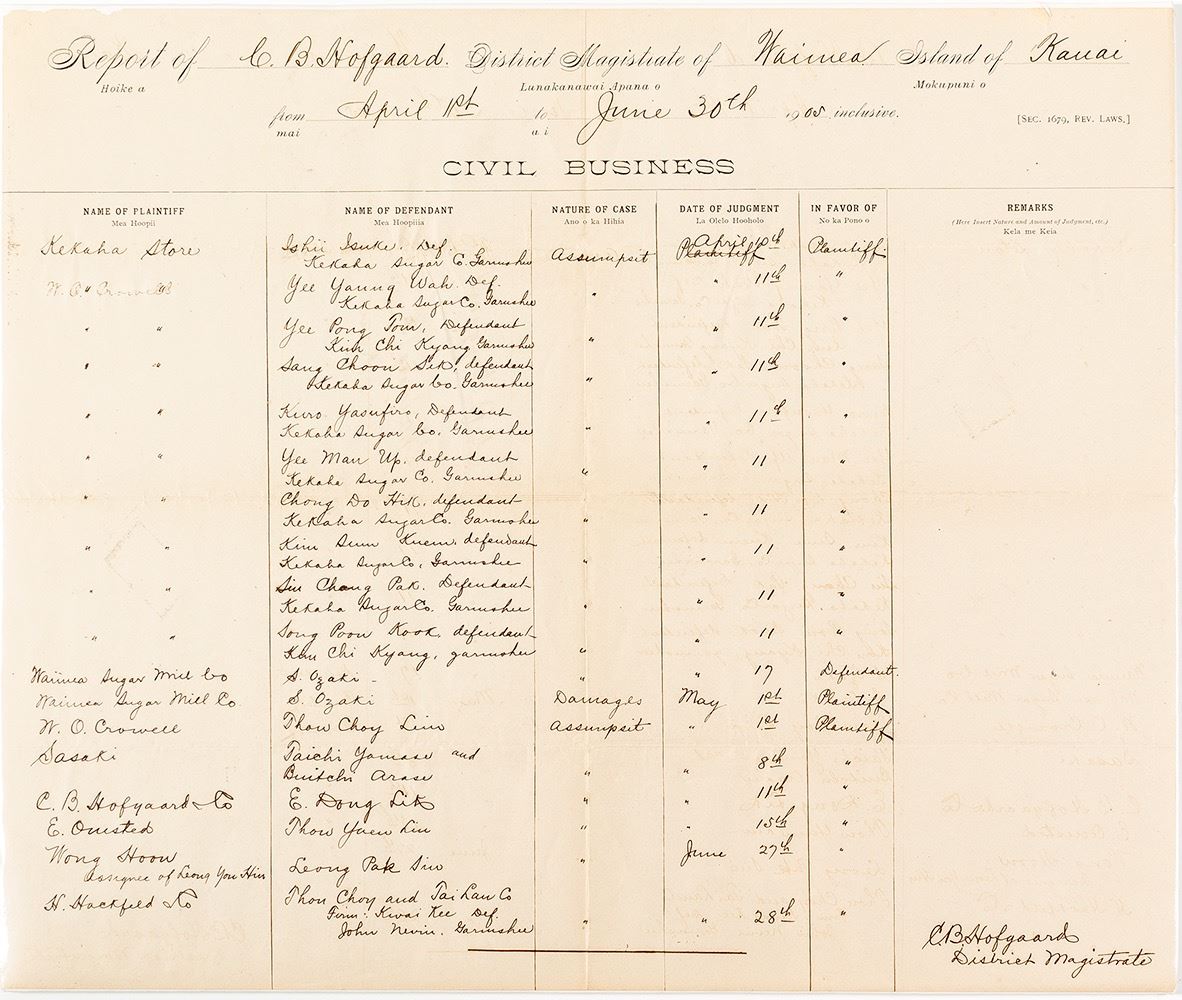 Report of C. B. Hofgaard. District Magistrate of Waimea Island of Kauai
Hoike a Lunakanawai Apana o Mokupuni o
from April 1st to June 30th 1905 inclusive. [SEC. 1679, REV. LAWS.]
mai a i
CIVIL BUSINESS
NAME OF PLAINTIFF NAME OF DEFENDANT NATURE OF CASE DATE OF JUDGMENT IN FAVOR OF REMARKS
Mea Hoopii Mea Hoopiiia Ano o ka Hihia La Olelo Hooholo No ka Pono o (Here Insert Nature and Amount of Judgment, etc.)
Kela me Keia
Kekaha Store Ishii Isuke. Def. Assumpsit April 10th Plaintiff Plaintiff
Kekaha Sugar Co. Garnishee
" " Yee Young Wah. Def. " " 11th "
Kekaha Sugar Co. Garnishee
" " Yee Pong Tom, Defendant " " 11th "
Kim Chi Kyang Garnishee
" " Sang Choon Sik, defendant " " 11th "
Kekaha Sugar Co. Garnishee
" " Kuro Yasufiro, Defendant " 11th "
Kekaha Sugar Co. Garnishee
" " Yee Man Up, defendant " " 11 "
Kekaha Sugar Co. Garnishee
" " Chong Do Hik, defendant " " 11 "
Kekaha Sugar Co. Garnishee
" " Kim Sum Kuem, defendant " " 11 "
Kekaha Sugar Co, Garnishee
" " Sin Chang Pak. Defendant " " 11 "
Kekaha Sugar Co. Garnishee
" " Song Poon Kook, defendant " " 11 "
Kim Chi Kyang, garnishee
Waimea Sugar Mill Co S. Ozaki - " " 17 Defendant.
Waimea Sugar Mill Co. S. Ozaki Damages May 1st Plaintiff
W. O. Crowell Thou Choy Lim Assumpsit " 1st Plaintiff
Sasaki Taichi Yamase and " " 8th "
Buitchi Arase
C. B. Hofgaard & Co E. Dong Lit " " 11th "
E. Omsted Thou Yuen Lin " " 15th "
Wong Hoon Leong Pak Sin " June 27th "
Assignee of Leong You Hin
H. Hackfeld & Co Thou Choy and Tai Lan Co " " 28th "
Firm: Kwai Kee Def.
John Nevin. Garnishee
C B Hofgaard
District Magistrate